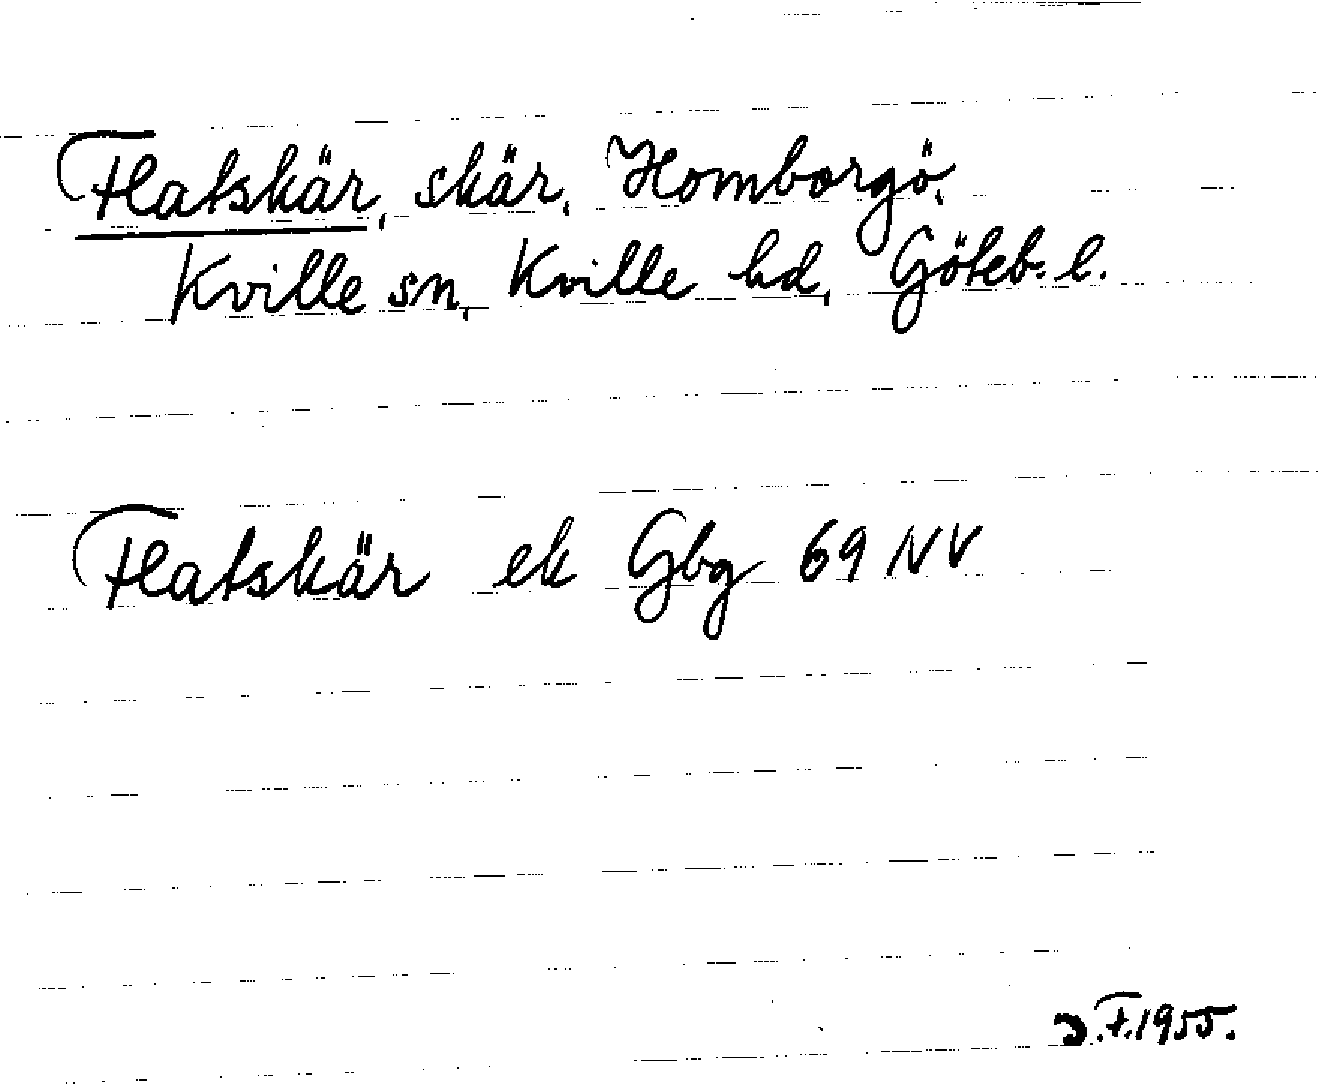 Flatskär, skär, Homborgö.
Kville sn, Kville hd, Göteb. l.
Flatskär ek Gbg 69 NV
D.F.1955.